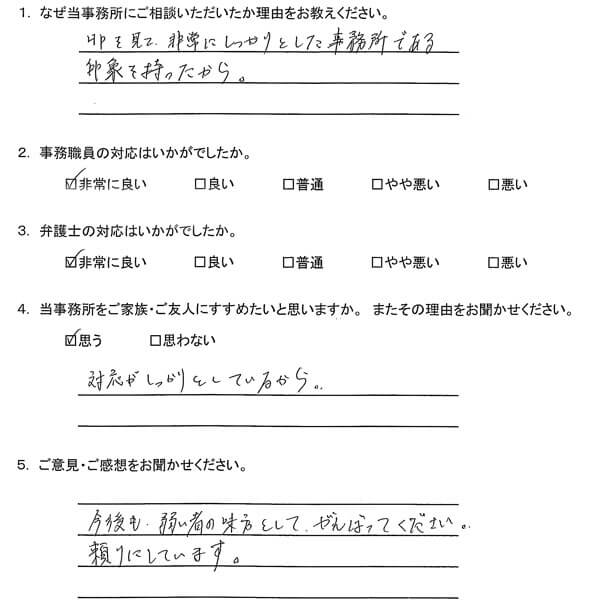 1. なぜ当事務所にご相談いただいたか理由をお教えください。
HPを見て、非常にしっかりとした事務所である
印象を持ったから。
2. 事務職員の対応はいかがでしたか。
☑非常に良い □良い □普通 □やや悪い □悪い
3. 弁護士の対応はいかがでしたか。
☑非常に良い □良い □普通 □やや悪い □悪い
4. 当事務所をご家族・ご友人にすすめたいと思いますか。 またその理由をお聞かせください。
☑思う □思わない
対応がしっかりとしているから。
5. ご意見・ご感想をお聞かせください。
今後も、弱い者の味方として、がんばってください。
頼りにしています。